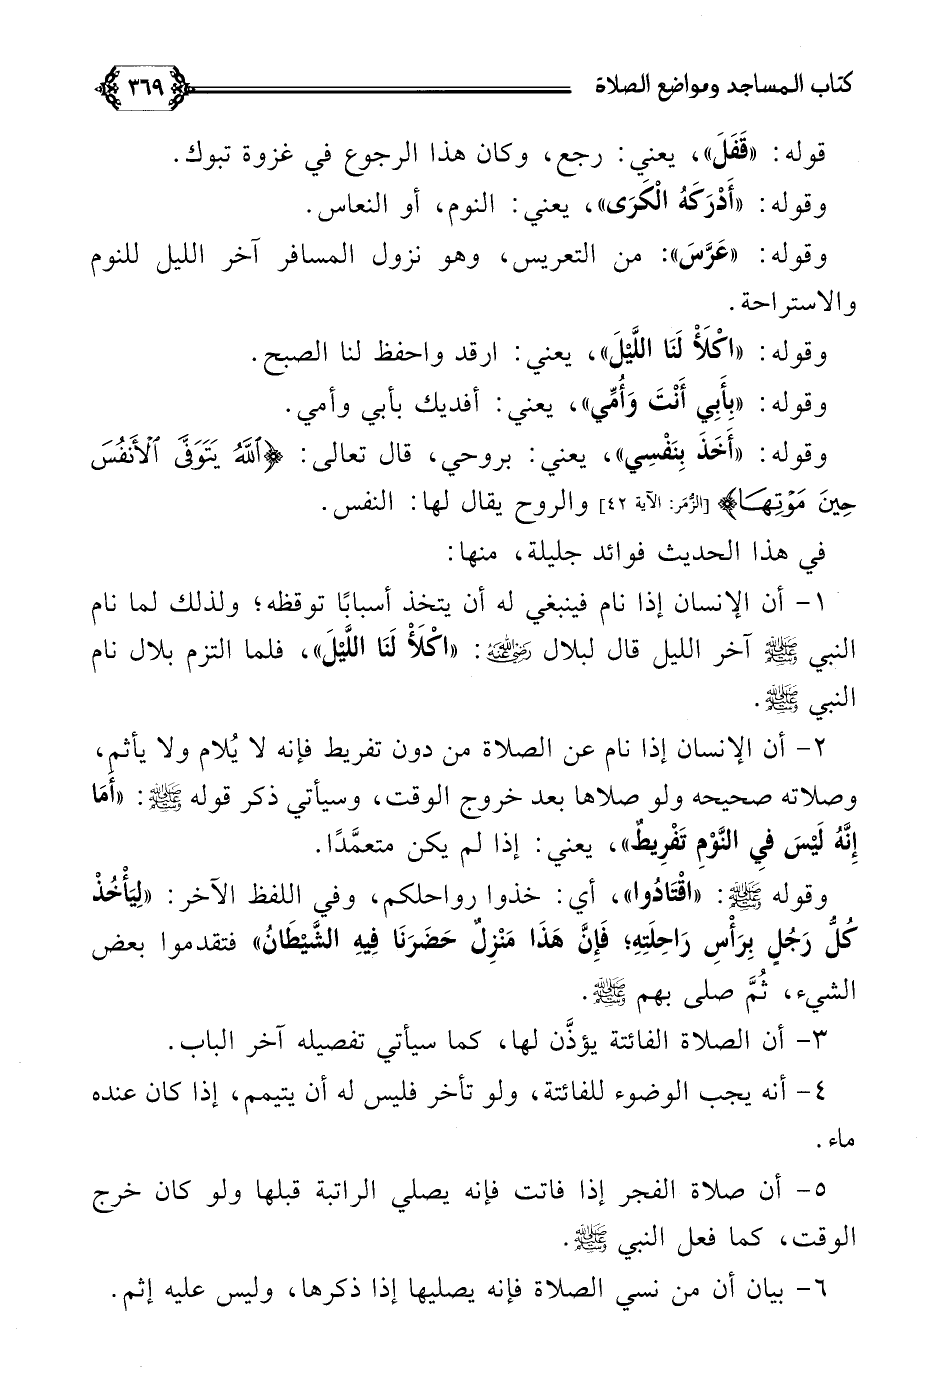 كتاب المساجد ومواضع الصلاة ٣٦٩
قوله: «قَفَلَ»، يعني: رجع، وكان هذا الرجوع في غزوة تبوك.
وقوله: «أَدْرَكَهُ الْكَرَى»، يعني: النوم، أو النعاس.
وقوله: «عَرَّسَ»: من التعريس، وهو نزول المسافر آخر الليل للنوم
والاستراحة.
وقوله: «اكْلَأْ لَنَا اللَّيْلَ»، يعني: ارقد واحفظ لنا الصبح.
وقوله: «بِأَبِي أَنْتَ وَأُمِّي»، يعني: أفديك بأبي وأمي.
وقوله: «أَخَذَ بِنَفْسِي»، يعني: بروحي، قال تعالى: ﴿ٱللَّهُ يَتَوَفَّى ٱلْأَنفُسَ
حِينَ مَوْتِهَا﴾ [الزُّمَر: الآية ٤٢] والروح يقال لها: النفس.
في هذا الحديث فوائد جليلة، منها:
١- أن الإنسان إذا نام فينبغي له أن يتخذ أسبابًا توقظه؛ ولذلك لما نام
النبي ﷺ آخر الليل قال لبلال رضي الله عنه: «اكْلَأْ لَنَا اللَّيْلَ»، فلما التزم بلال نام
النبي ﷺ.
٢- أن الإنسان إذا نام عن الصلاة من دون تفريط فإنه لا يُلام ولا يأثم،
وصلاته صحيحه ولو صلاها بعد خروج الوقت، وسيأتي ذكر قوله ﷺ: «أَمَا
إِنَّهُ لَيْسَ فِي النَّوْمِ تَفْرِيطٌ»، يعني: إذا لم يكن متعمَّدًا.
وقوله ﷺ: «اقْتَادُوا»، أي: خذوا رواحلكم، وفي اللفظ الآخر: «لِيَأْخُذْ
كُلُّ رَجُلٍ بِرَأْسِ رَاحِلَتِهِ؛ فَإِنَّ هَذَا مَنْزِلٌ حَضَرَنَا فِيهِ الشَّيْطَانُ» فتقدموا بعض
الشيء، ثُمَّ صلى بهم ﷺ.
٣- أن الصلاة الفائتة يؤذَّن لها، كما سيأتي تفصيله آخر الباب.
٤- أنه يجب الوضوء للفائتة، ولو تأخر فليس له أن يتيمم، إذا كان عنده
ماء.
٥- أن صلاة الفجر إذا فاتت فإنه يصلي الراتبة قبلها ولو كان خرج
الوقت، كما فعل النبي ﷺ.
٦- بيان أن من نسي الصلاة فإنه يصليها إذا ذكرها، وليس عليه إثم.